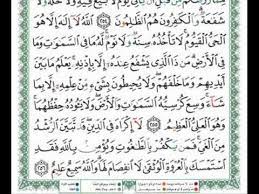 شَفَٰعَةٌ وَٱلْكَٰفِرُونَ هُمُ ٱلظَّٰلِمُونَ ٢٥٤ ٱللَّهُ لَآ إِلَٰهَ إِلَّا هُوَ
ٱلْحَىُّ ٱلْقَيُّومُ لَا تَأْخُذُهُۥ سِنَةٌ وَلَا نَوْمٌ لَّهُۥ مَا فِى ٱلسَّمَٰوَٰتِ وَمَا
فِى ٱلْأَرْضِ مَن ذَا ٱلَّذِى يَشْفَعُ عِندَهُۥٓ إِلَّا بِإِذْنِهِۦ يَعْلَمُ مَا بَيْنَ
أَيْدِيهِمْ وَمَا خَلْفَهُمْ وَلَا يُحِيطُونَ بِشَىْءٍ مِّنْ عِلْمِهِۦٓ إِلَّا بِمَا
شَآءَ وَسِعَ كُرْسِيُّهُ ٱلسَّمَٰوَٰتِ وَٱلْأَرْضَ وَلَا يَـُٔودُهُۥ حِفْظُهُمَا
وَهُوَ ٱلْعَلِىُّ ٱلْعَظِيمُ ٢٥٥ لَآ إِكْرَاهَ فِى ٱلدِّينِ قَد تَّبَيَّنَ ٱلرُّشْدُ
مِنَ ٱلْغَىِّ فَمَن يَكْفُرْ بِٱلطَّٰغُوتِ وَيُؤْمِنۢ بِٱللَّهِ فَقَدِ
ٱسْتَمْسَكَ بِٱلْعُرْوَةِ ٱلْوُثْقَىٰ لَا ٱنفِصَامَ لَهَا وَٱللَّهُ سَمِيعٌ عَلِيمٌ ٢٥٦